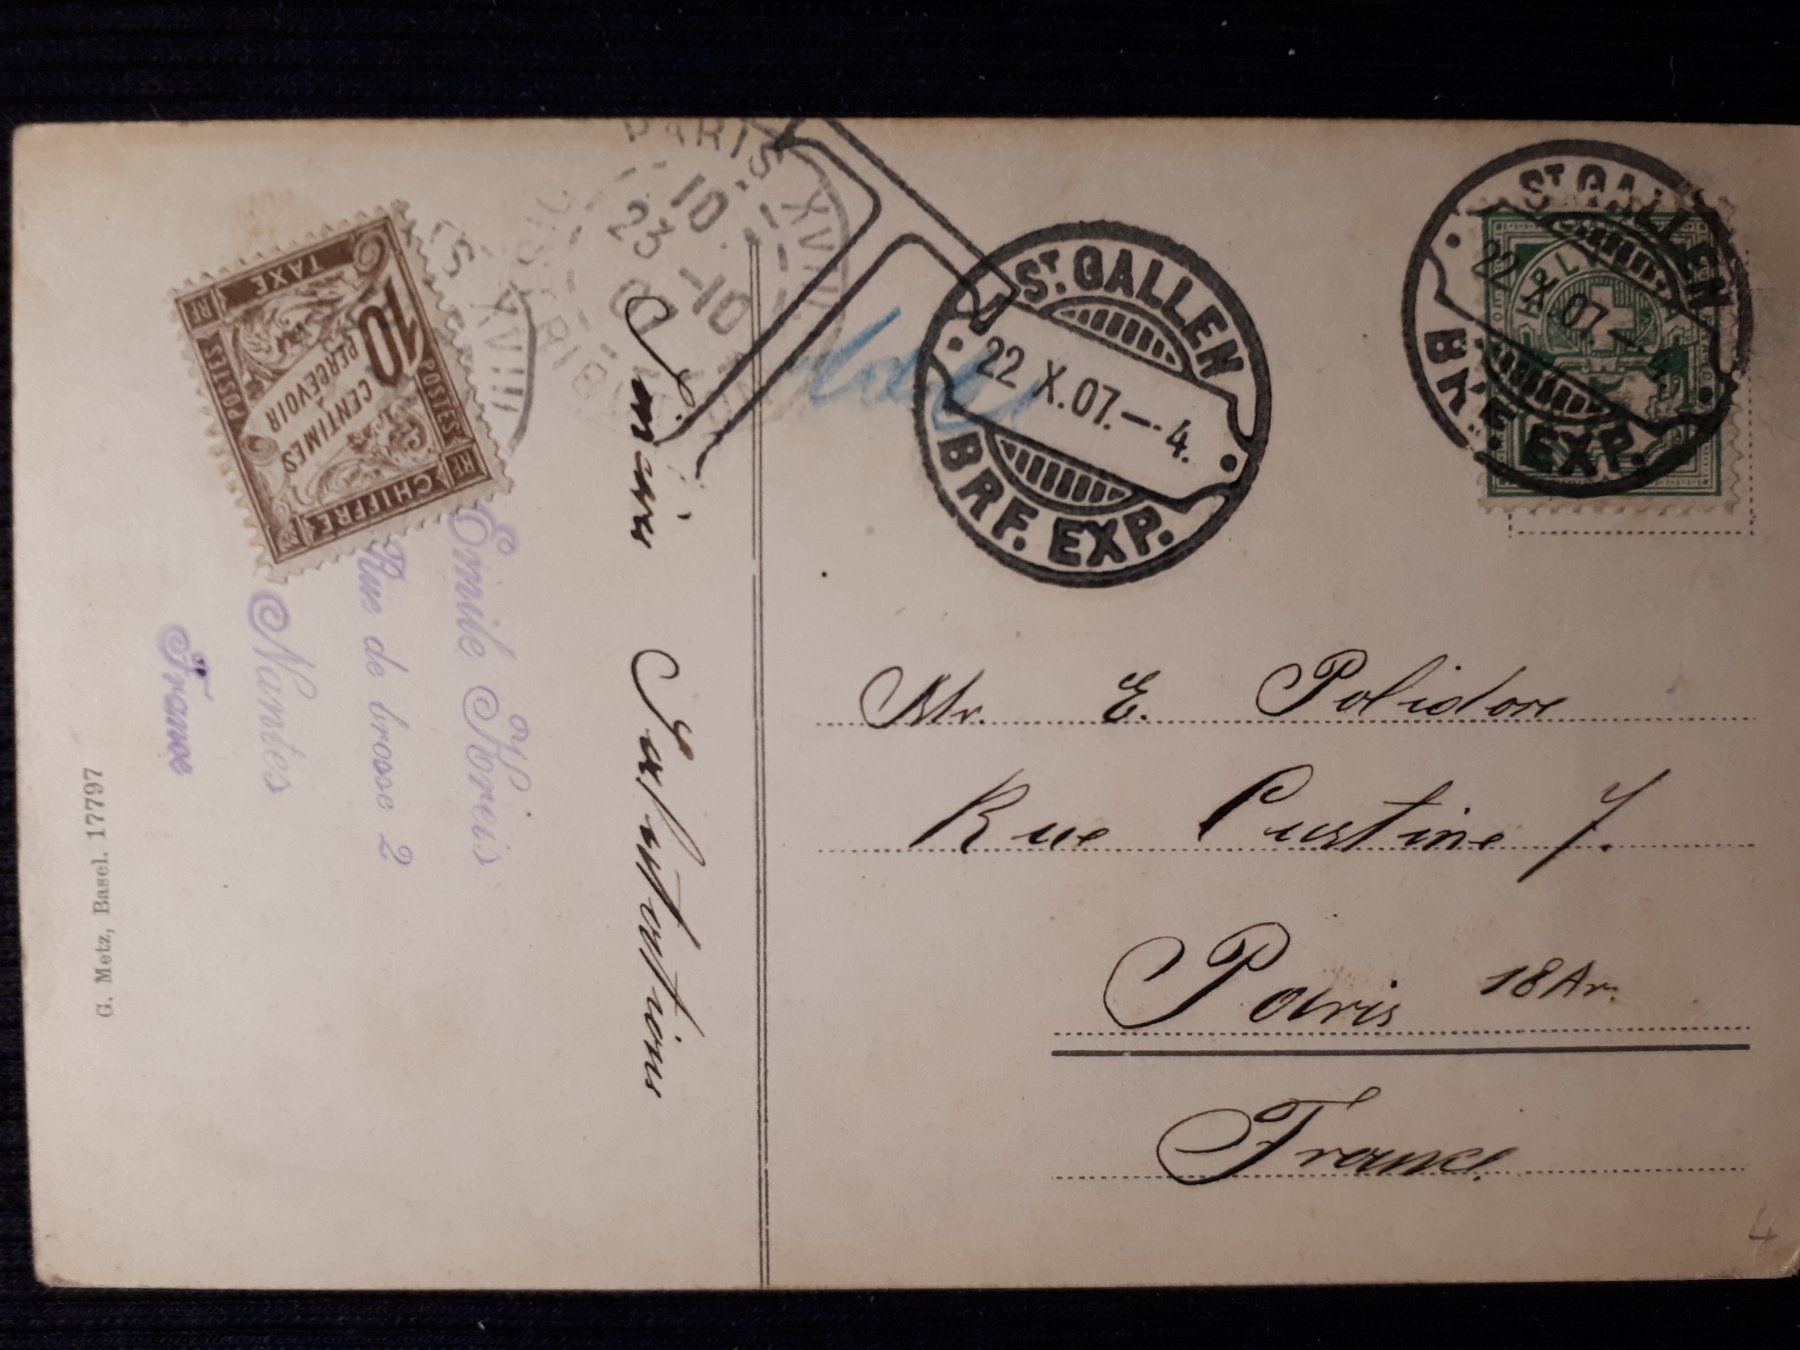 PARIS XVIII
10
23 -10
07
RF TAXE
POSTES
10
CENTIMES
À
PERCEVOIR
POSTES
RF CHIFFRE
Emile Kreis
Rue de brosse 2
Nantes
France
Sincères Salutations
G. Metz, Basel. 17797
ST. GALLEN
22 X.07.–4.
BRF. EXP.
ST. GALLEN
22 X.07.–4
BRF. EXP.
HELVETIA
Mr. E. Polidore
Rue Custine 7.
Paris 18 Ar.
France
4